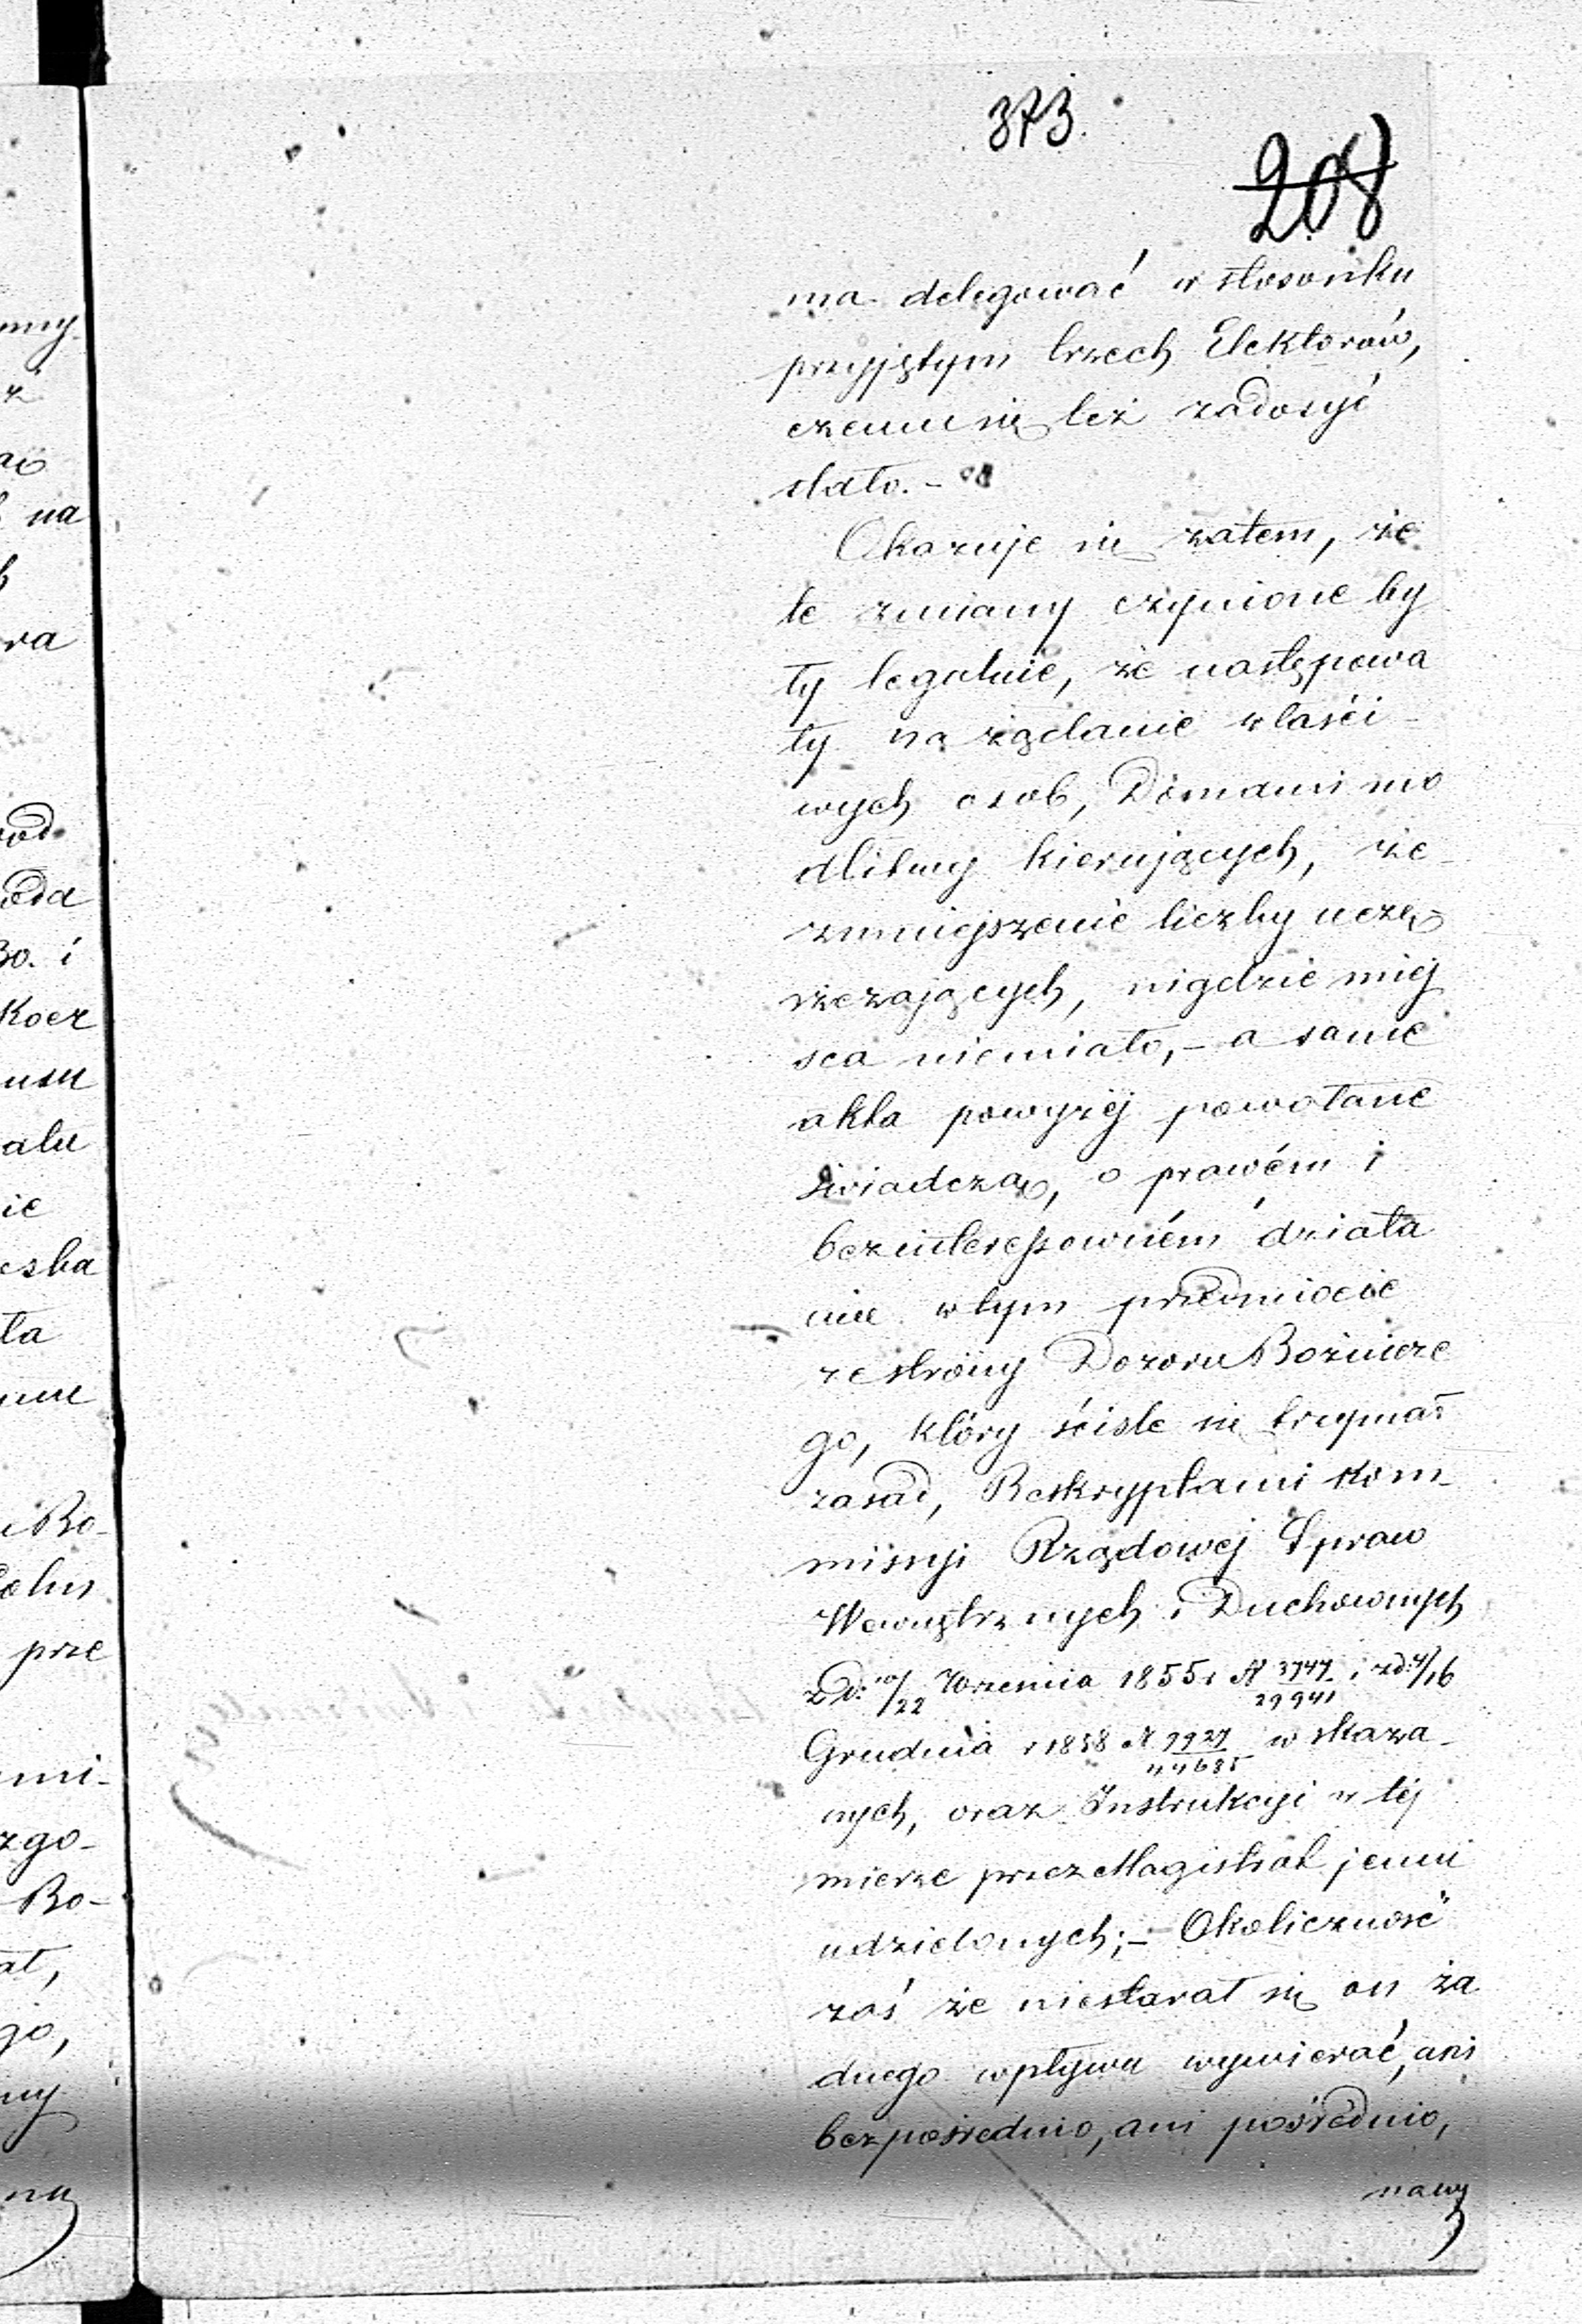 373.
208
ma delegować w stosonku
przyjętym trzech Elektorów,
czemu się też zadosyć
stało. -
Okazuje się zatem, że
te zmiany czynione by
ły legalnie, że następowa
ły na żądanie właści-
wych osob, Domami mo
dlitwy kierujących, że
zmniejszenie liczby uczę
szczających, nigdzie miej
sca niemiało, - a same
akta powyżej powołane
świadczą, o prawém i
bezinteressowném działa
niu w tym przedmiocie
ze strony Dozoru Bożnicze
go, który ściśle się trzymał
zasad, Reskryptami Kom-
missyi Rządowej Spraw
Wewnętrznych i Duchownych
z d: 10/22 Września 1855 r N 3747/29941 i z d: 4/16
Grudnia r 1858 N 9927/44685 wskaza-
nych, oraz Instrukcyi w téj
mierze przez Magistrat jemu
udzielonych; - Okoliczność
zaś że niestarał się on ża
dnego wpływu wywierać, ani
bezpośrednio, ani pośrednio,
na wy
my
na
ra
od
Bo. i
Kocz
usu
alu
ie
eska
ła
Bo-
prze
mi-
zgo-
Bo-
at,
go,
ny